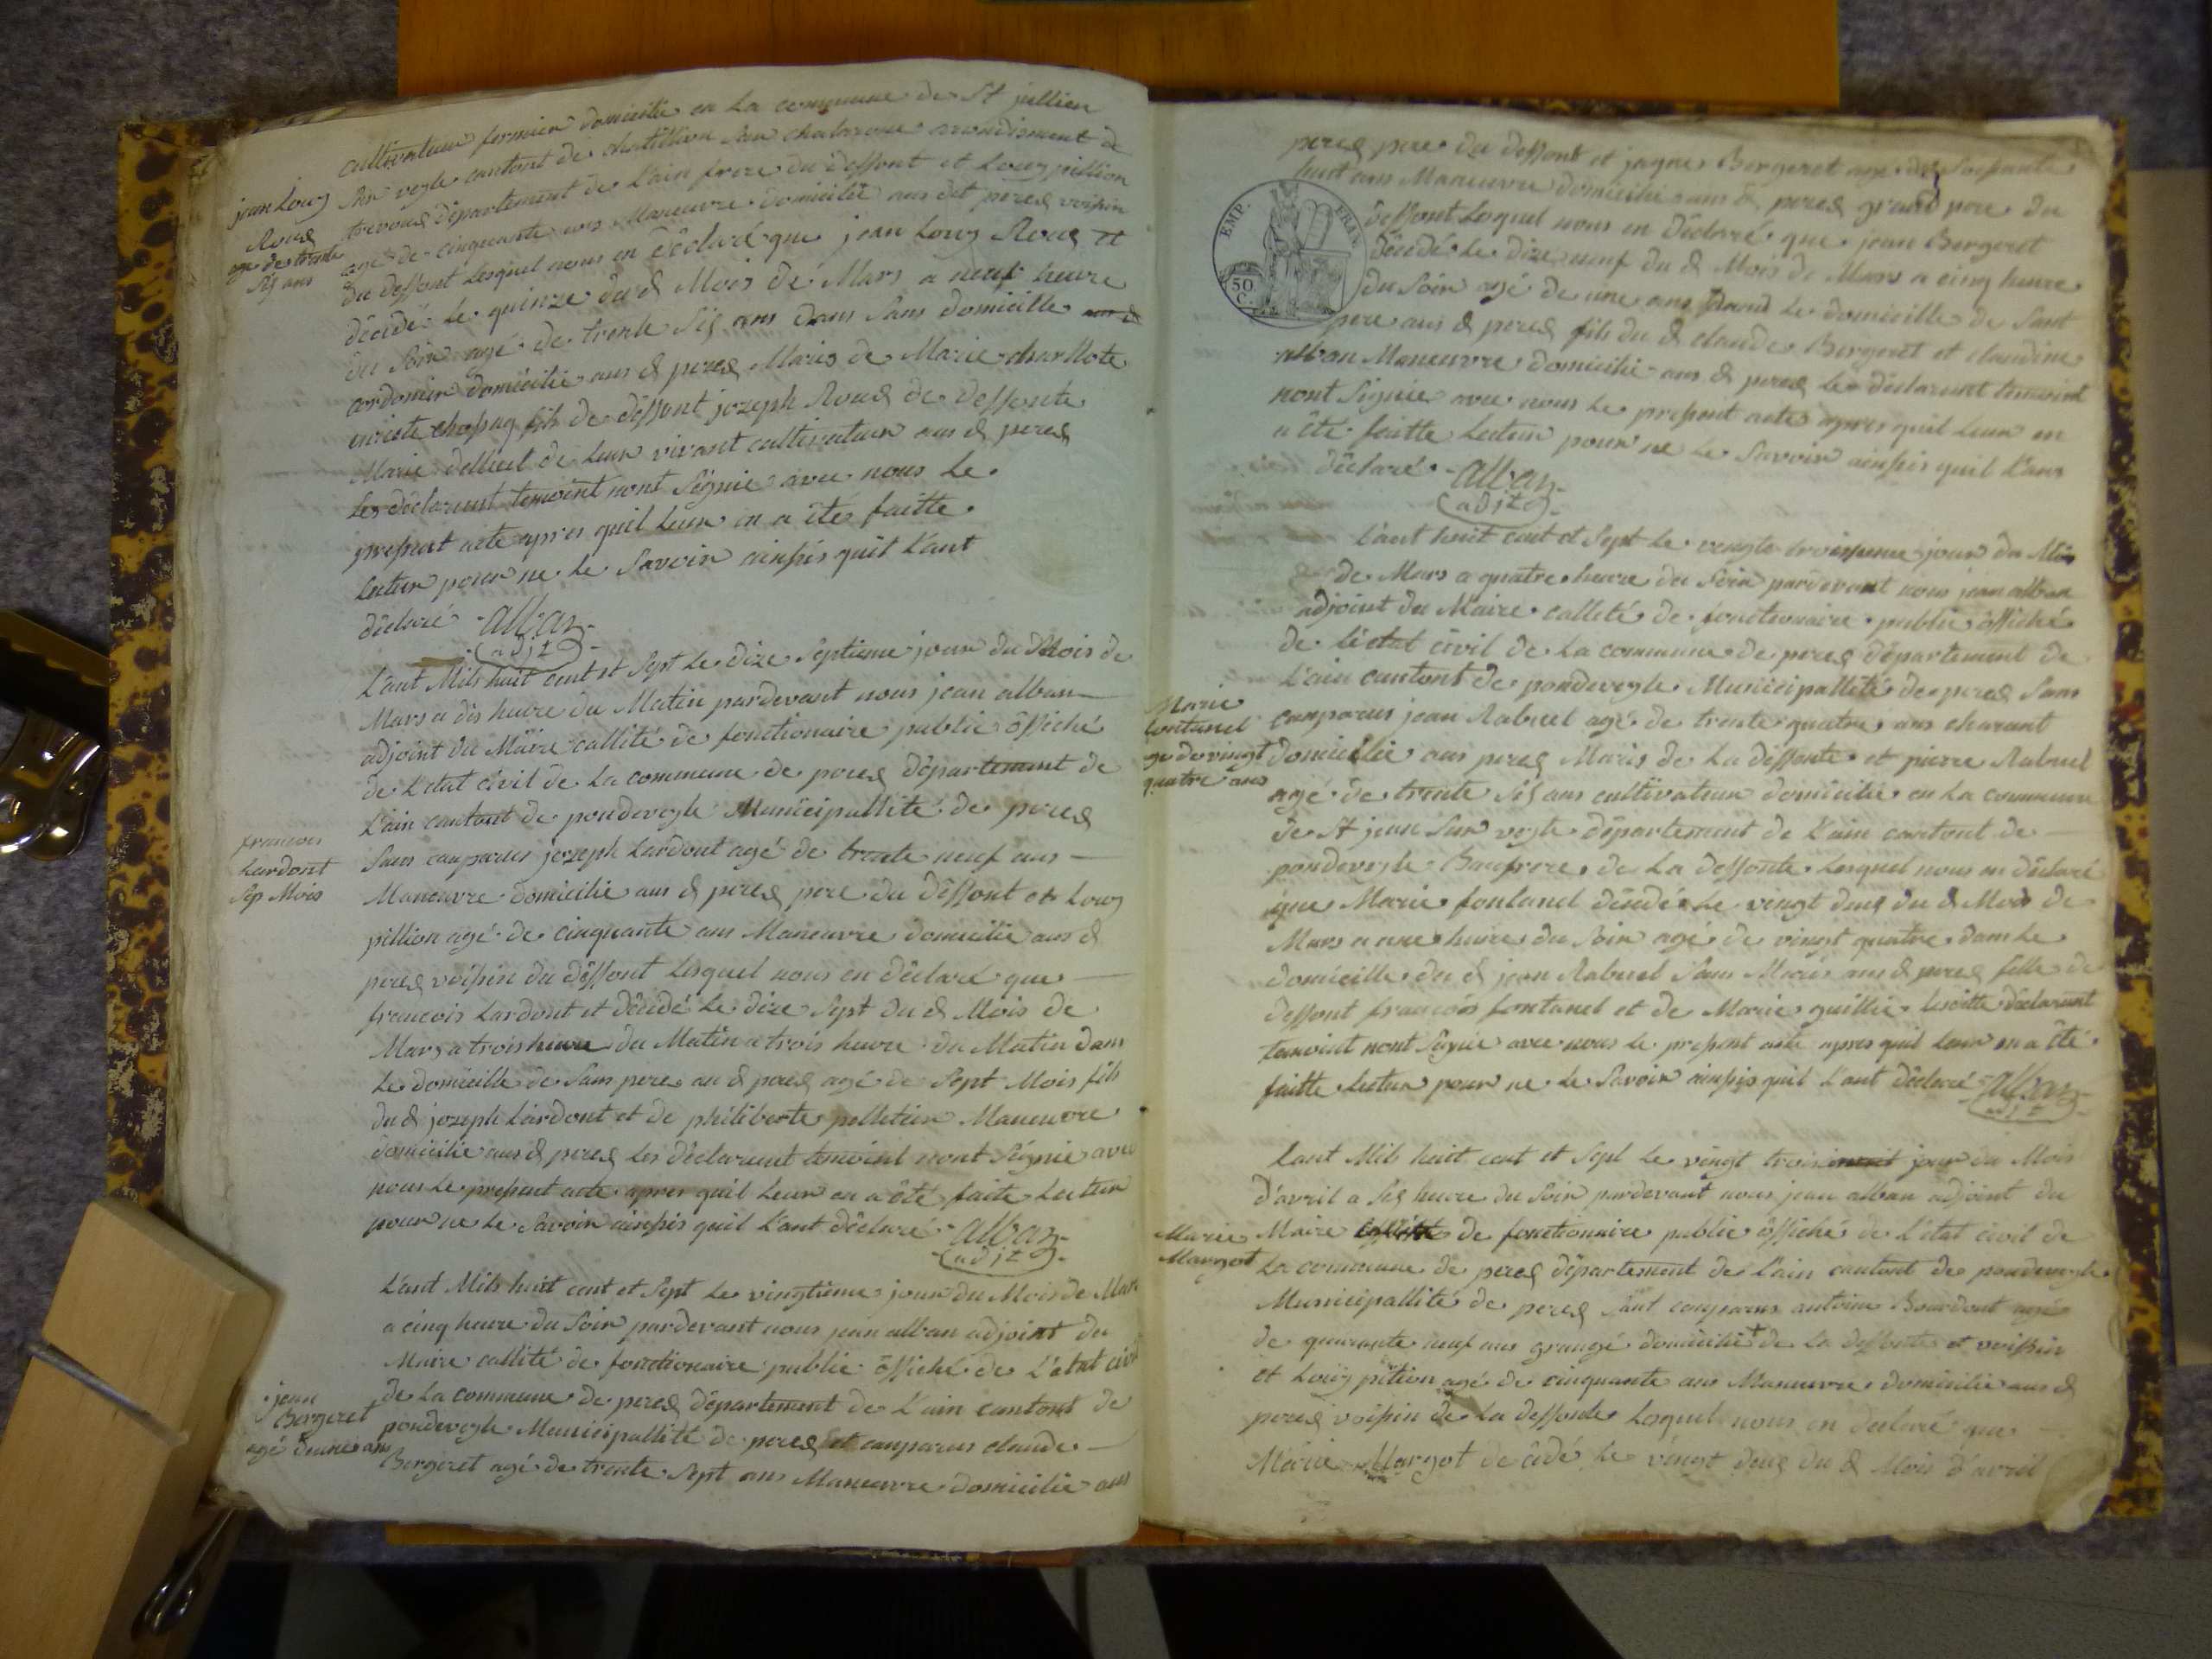 cultivateur fermier domicilié en la commune de St jullien
sur vegle cantont de chatillion sur chalarone arondisment de
jean Louis
Roux
agé de trente
six ans
trevoux département de L'ain frere du deffont et Louis pillion
agé de cinquante ans Maneuvre domicilié aus dit perex voisin
du deffont Lesquel nous en déclaré que jean Louis Roux et
décédé le quinze du d Mois de Mars a neuf heure
du soir agé de trente six ans dans sans domicille
cordonier domicilié aus d perex Maris de Marie charllote
fils de deffont jozeph Roux de deffonte
Marie de Leur vivant cultivateur aus d perex
Les déclarent temoint nont Signié avec nous Le
present acte apres quil Leur en a été faitte
Lectur pour ne Le Savoir ainssis quil L'ant
déclaré alban
adjt
L'ant Mils huit cent et Sept Le dixe Septieme jour du Mois de
Mars a dix heure du Matin pardevant nous jean alban
adjoint du Maire callité de fonctionaire public offiché
de L'état civil de La commune de perex département de
L'ain cantont de pondevegle Municipallité de perex
francois
Lardont
Sep Mois
Sans comparus jozeph Lardont agé de trente neuf ans
Maneuvre domicilié aus d perex pere du deffont et Louis
pillion agé de cinquante ans Maneuvre domicilié aus d
perex voissin du deffont Lesquel nous en déclaré que
francois Lardont et décédé Le dixe Sept du d Mois de
Mars a trois heure du Matin a trois heure du Matin dans
Le domicille de Sans pere au d perex agé de Sept Mois fils
du d jozeph Lardont et de philiberte pelletier Maneuvre
domicilié aus d perex Les déclarent temoint nont Signié avec
nous Le present acte apres quil Leur en a été faite Lectur
pour ne Le Savoir ainssis quil L'ant déclaré alban
adjt
L'ant Mils huit cent et Sept Le vingtieme jour du Mois de Mars
a cinq heure du Soir pardevant nous jean alban adjoint du
Maire callité de fonctionaire public offiché de L'état civil
jean
Bergeret
agé d'une ans
de La commune de perex département de L'ain cantont de
pondevegle Municipallité de perex et comparus claude
Bergeret agé de trente Sept ans Maneuvre domicilié aus
perex pere du deffont et jaque Bergeret age de Soissante
huit ans Maneuvre domicilié aus d perex grand pere du
EMP. FRAN.
50 C.
deffont Lesquel nous en déclaré que jean Bergeret
décédé Le dixe neuf du d Mois de Mars a cinq heure
du Soir agé de une ans dans Le domicille de Sant
pere aus d perex fils du d claude Bergeret et claudine
alban Maneuvre domicilié aus d perex Les déclarent temoint
nont Signié avec nous Le present acte apres quil Leur en
a été faitte Lectur pour ne Le Savoir ainssis quil L'ant
déclaré alban
adjt
L'ant huit cent et Sept Le vengte troissieme jour du Mois
de Mars a quatre heure du Soir pardevant nous jean alban
adjoint du Maire callité de fonctionaire public offiché
de L'état civil de La commune de perex département de
L'ain cantont de pondevegle Municipallité de perex Sans
Marie
fontanel
age de vingt
quatre ans
comparus jean Rabuel agé de trente quatre ans charant
domicilié aus perex Maris de La deffonte et pierre Rabuel
agé de trente Six ans cultivateur domicilié en La commune
de St jean Sur vegle département de L'ain cantont de
pondevegle Baufrere de La deffonte Lesquel nous en déclaré
que Marie fontanel décédé Le vingt deux du d Mois de
Mars a une heure du Soir agé de vingt quatre dans Le
domicille du d jean Rabuel Sans Maris aus d perex fille de
deffont francois fontanel et de Marie guillié déclarent
temoint nont Signié avec nous Le present acte apres quil Leur en a été
faitte Lectur pour ne Le Savoir ainssis quil L'ant déclaré alban
adjt
L'ant Mils huit cent et Sept Le vingt trois jour du Mois
d'avril a Six heure du Soir pardevant nous jean alban adjoint du
Marie
Margot
Maire callité de fonctionaire public offiché de L'état civil de
La commune de perex département de L'ain cantont de pondevegle
Municipallité de perex Sant comparus antoine Bourdont agé
de quarante neuf ans grangé domicilié + de La deffonte et voissin
et Louis pition agé de cinquante ans Maneuvre domicilié aus d
perex voissin de La deffonte Lesquel nous en déclaré que
Marie Margot décédé Le vingt deux du d Mois d'avril